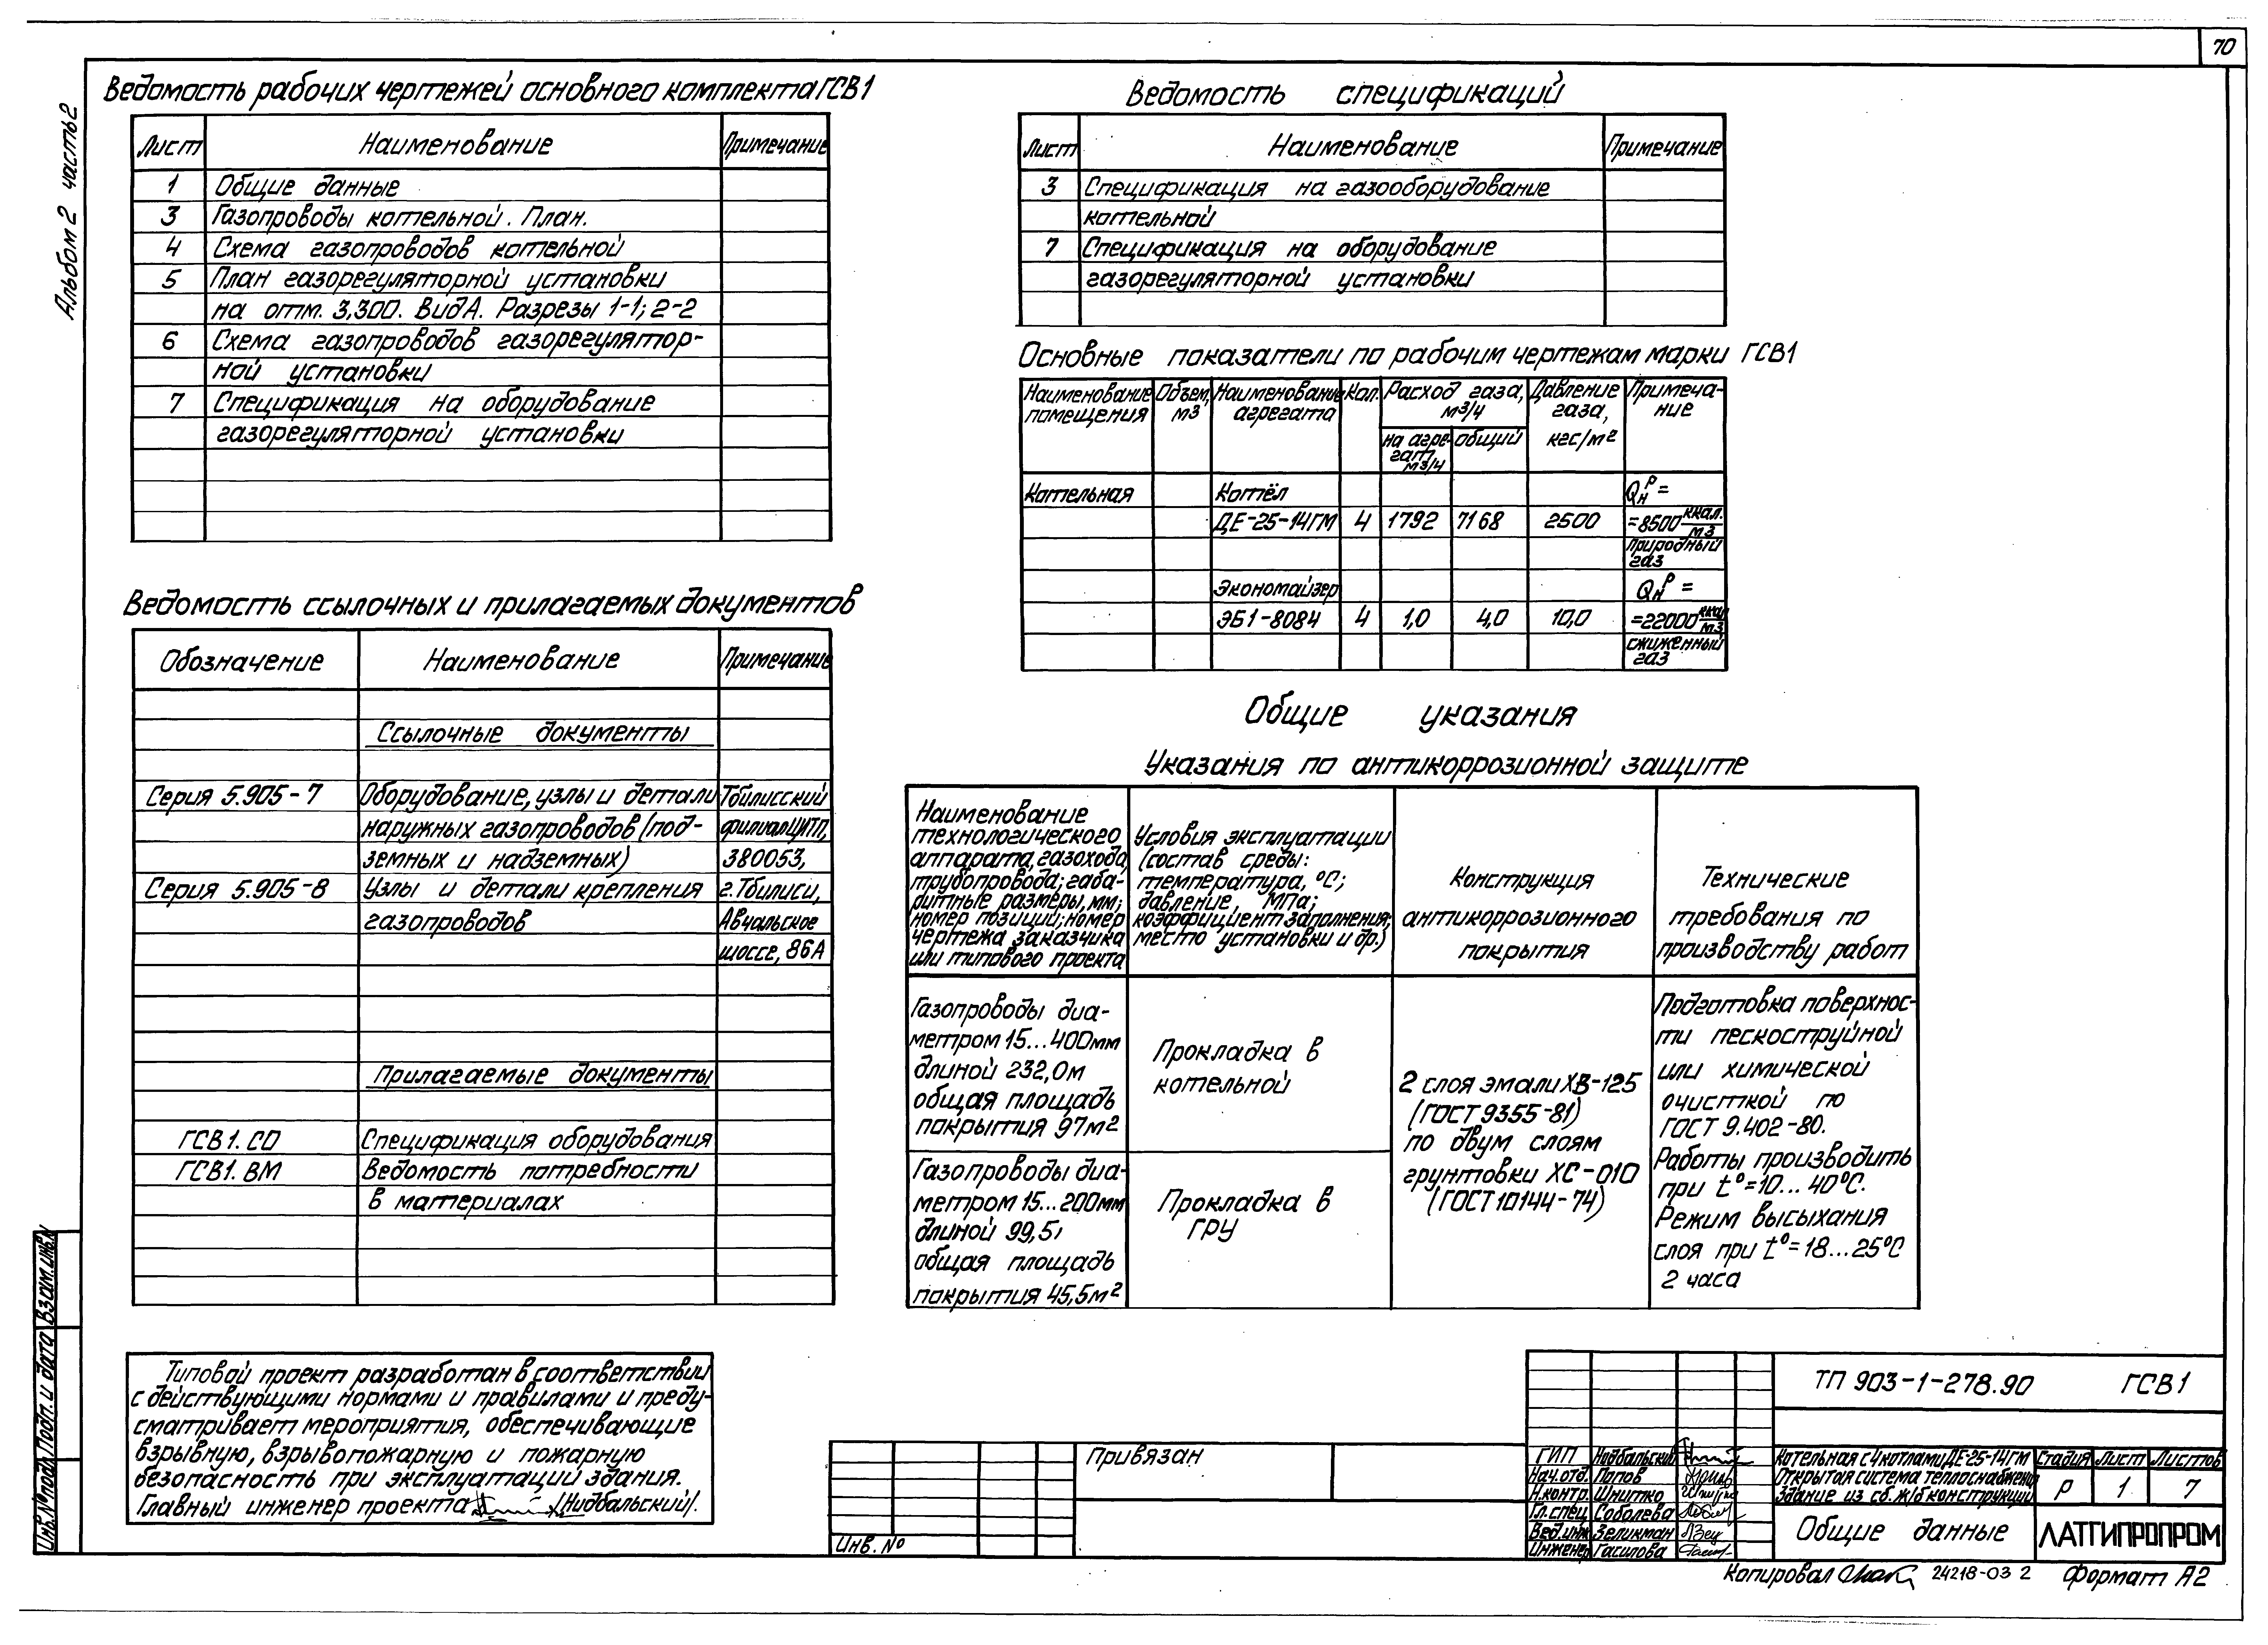 70
Альбом 2 часть 2
Ведомость рабочих чертежей основного комплекта ГСВ1
Лист Наименование Примечание
1 Общие данные
3 Газопроводы котельной. План.
4 Схема газопроводов котельной
5 План газорегуляторной установки
на отм. 3,300. Вид А. Разрезы 1-1; 2-2
6 Схема газопроводов газорегулятор-
ной установки
7 Спецификация на оборудование
газорегуляторной установки
Ведомость ссылочных и прилагаемых документов
Обозначение Наименование Примечание
Ссылочные документы
Серия 5.905-7 Оборудование, узлы и детали Тбилисский
наружных газопроводов (под- филиал ЦИТП,
земных и надземных) 380053,
Серия 5.905-8 Узлы и детали крепления г. Тбилиси,
газопроводов Авчальское
шоссе, 86А
Прилагаемые документы
ГСВ1. СО Спецификация оборудования
ГСВ1. ВМ Ведомость потребности
в материалах
Типовой проект разработан в соответствии
с действующими нормами и правилами и преду-
сматривает мероприятия, обеспечивающие
взрывную, взрывопожарную и пожарную
безопасность при эксплуатации здания.
Главный инженер проекта /Нидбальский/.
Ведомость спецификаций
Лист Наименование Примечание
3 Спецификация на газооборудование
котельной
7 Спецификация на оборудование
газорегуляторной установки
Основные показатели по рабочим чертежам марки ГСВ1
Наименование помещения Объем, м3 Наименование агрегата Кол. Расход газа, м3/ч Давление газа, кгс/м2 Примеча-ние
на агре-гат, м3/ч общий
Котельная Котёл Qнр =
ДЕ-25-14ГМ 4 1792 7168 2500 =8500 ккал./м3
природный газ
Экономайзер Qнр =
ЭБ1-808И 4 1,0 4,0 10,0 =22000 ккал/м3
сжиженный газ
Общие указания
Указания по антикоррозионной защите
Наименование
технологического
аппарата, газохода,
трубопровода; габа-
ритные размеры, мм;
номер позиций; номер
чертежа заказчика
или типового проекта
Условия эксплуатации
(состав среды:
температура, °С;
давление, МПа;
коэффициент заполнения;
место установки и др.)
Конструкция
антикоррозионного
покрытия
Технические
требования по
производству работ
Газопроводы диа-
метром 15...400мм
длиной 232,0м
общая площадь
покрытия 97м2
Прокладка в
котельной
Газопроводы диа-
метром 15...200мм
длиной 99,5
общая площадь
покрытия 45,5м2
Прокладка в
ГРУ
2 слоя эмали ХВ-125
(ГОСТ 9355-81)
по двум слоям
грунтовки ХС-010
(ГОСТ 10144-74)
Подготовка поверхнос-
ти пескоструйной
или химической
очисткой по
ГОСТ 9.402-80.
Работы производить
при t°=10...40°С.
Режим высыхания
слоя при t°=18...25°С
2 часа
Взам. инв. №
Подп. и дата
Инв. № подл.
Привязан
Инв. №
ТП 903-1-278.90 ГСВ1
ГИП Нидбальский
Нач. отд. Попов
Н.контр. Шнитко
Гл. спец. Соболева
Вед. инж. Зеликман
Инженер Гасилова
Котельная с 4 котлами ДЕ-25-14ГМ
Открытая система теплоснабжения
Здание из сб. ж/б конструкций
Стадия Лист Листов
Р 1 7
Общие данные
ЛАТГИПРОПРОМ
Копировал 24218-03 2 Формат А2